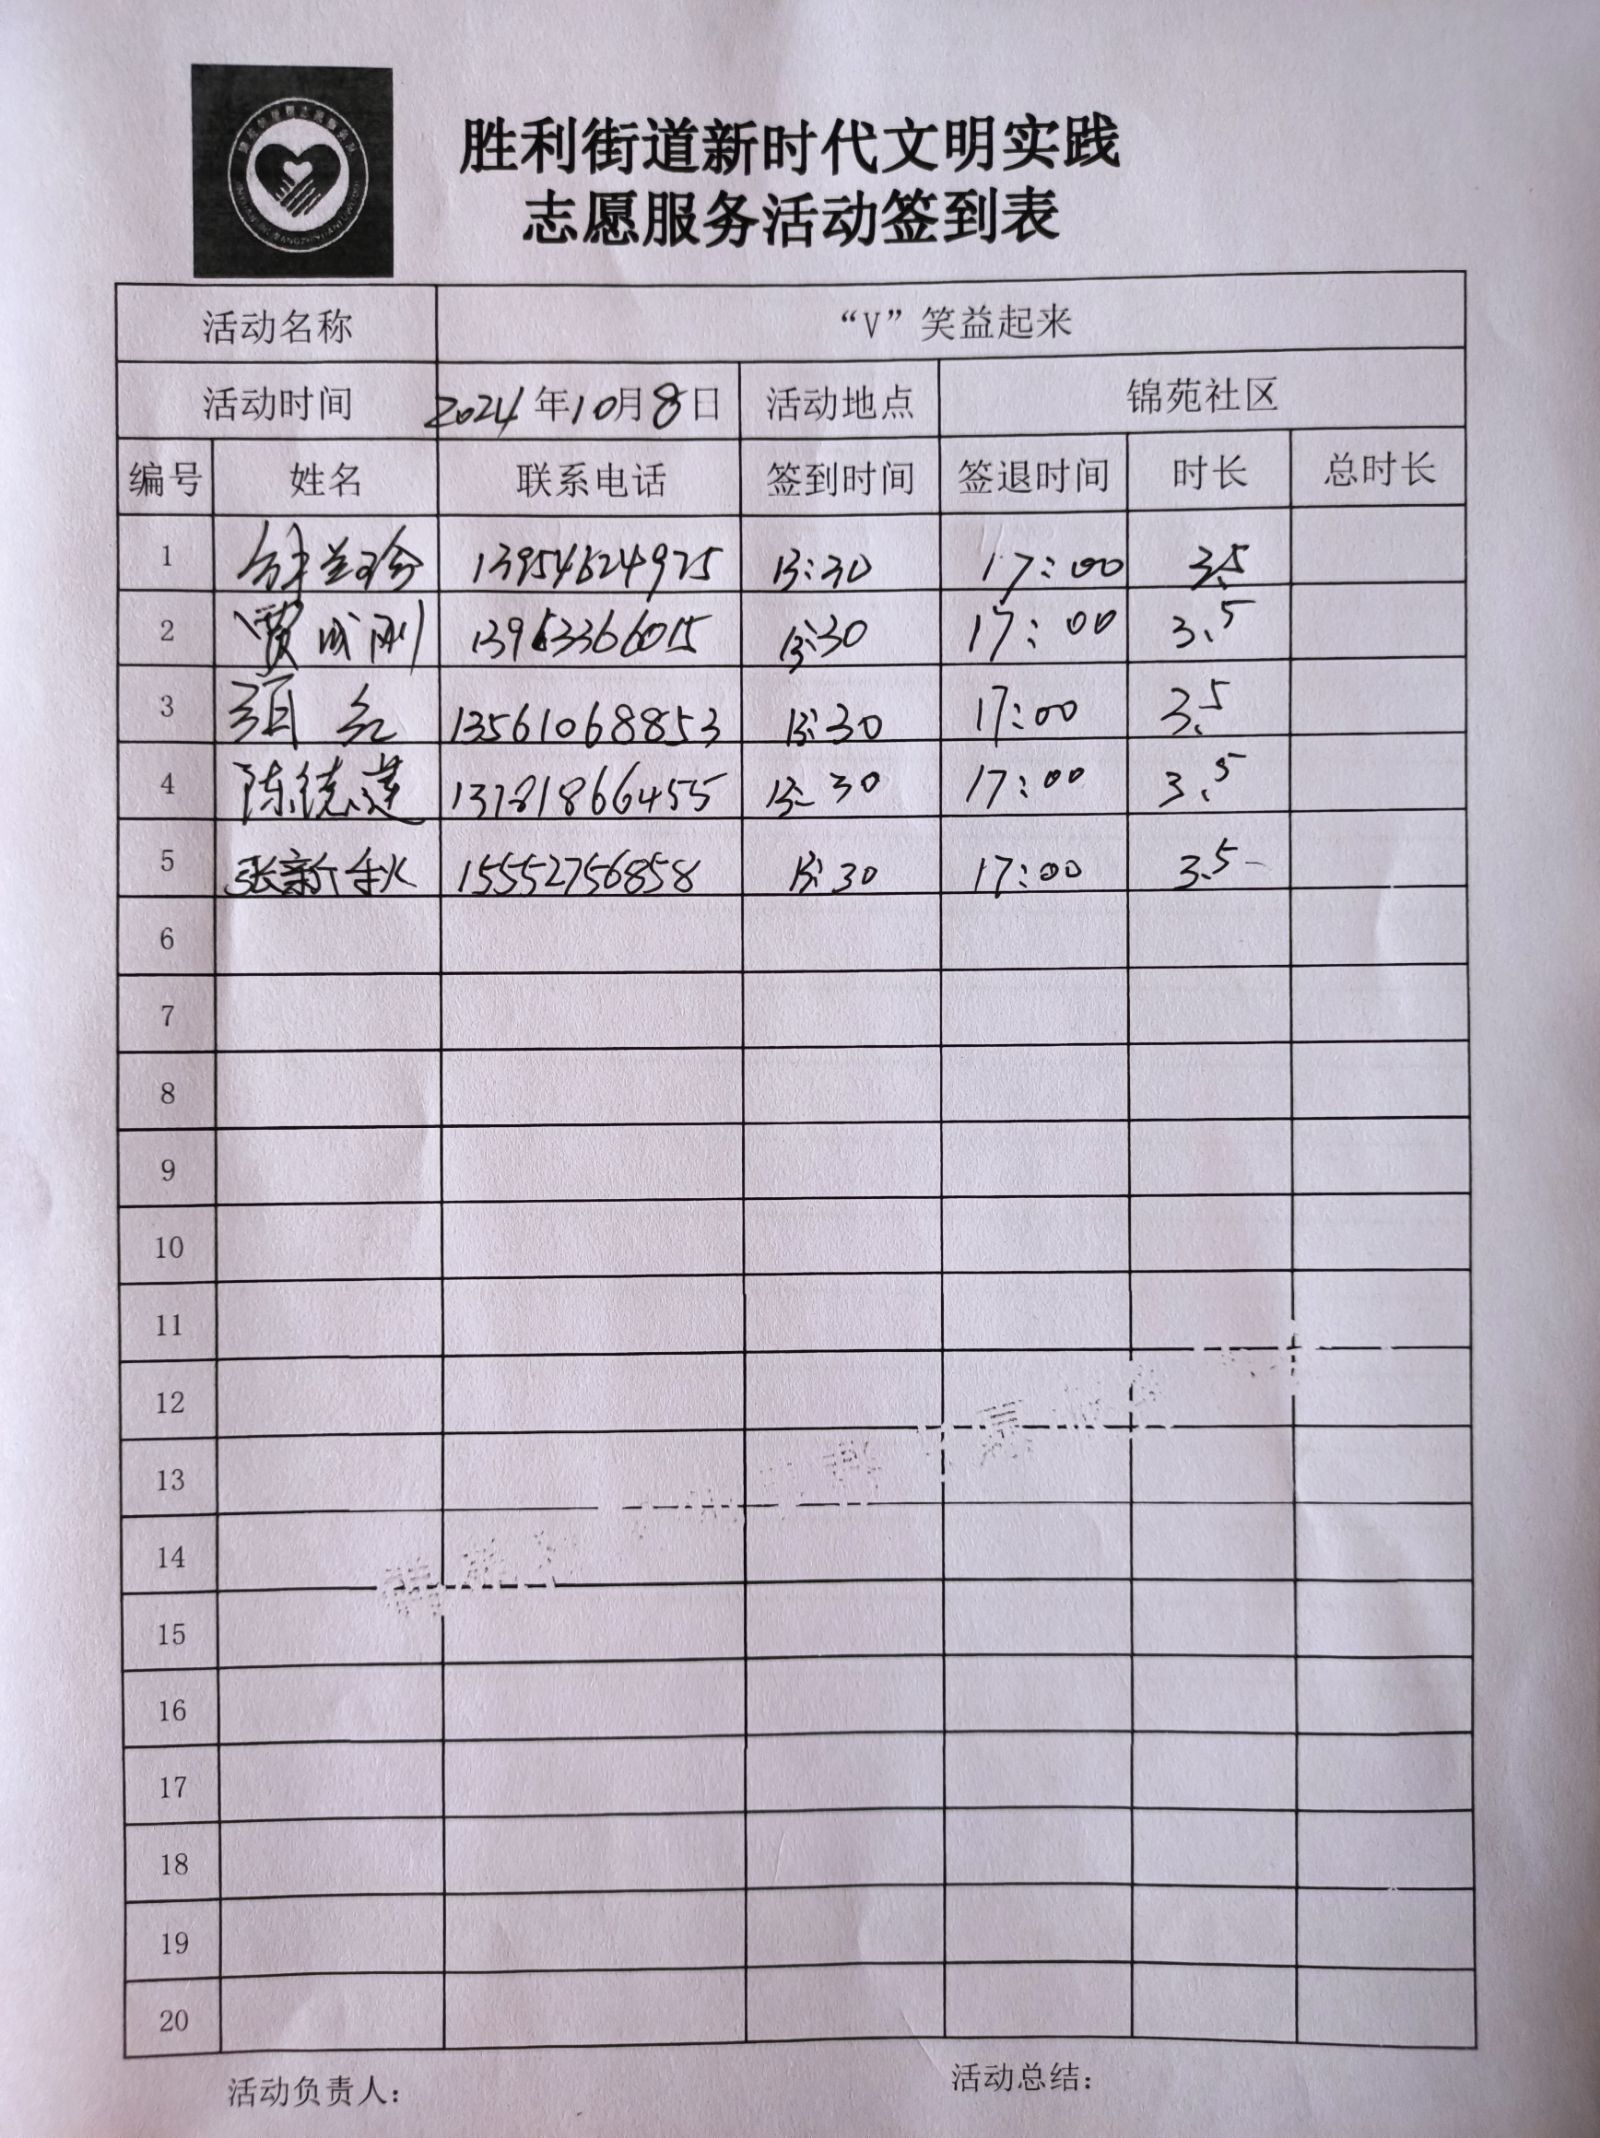 胜利街道新时代文明实践
志愿服务活动签到表
活动名称 “V”笑益起来
活动时间 2024年10月8日 活动地点 锦苑社区
编号 姓名 联系电话 签到时间 签退时间 时长 总时长
1 13954624975 13:30 17:00 3.5
2 贾成刚 13963366015 13:30 17:00 3.5
3 13561068853 13:30 17:00 3.5
4 陈德莲 13781866455 13:30 17:00 3.5
5 张新秋 15552756858 13:30 17:00 3.5
6
7
8
9
10
11
12
13
14
15
16
17
18
19
20
活动负责人： 活动总结：